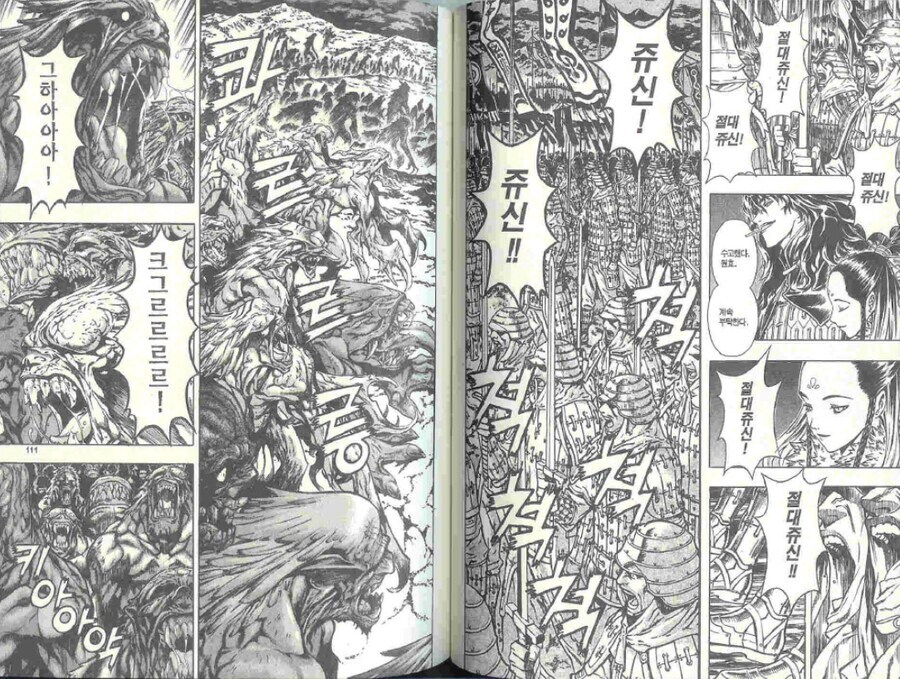 절대쥬신!
절대
쥬신!
절대
쥬신!
수고했다,
원효.
계속
부탁한다.
절대쥬신!
절대쥬신!!
쥬신!
쥬신!!
척
척
척
척
콰
르
르
릉
그하아아아!
크그르르르르!
111
키아아악